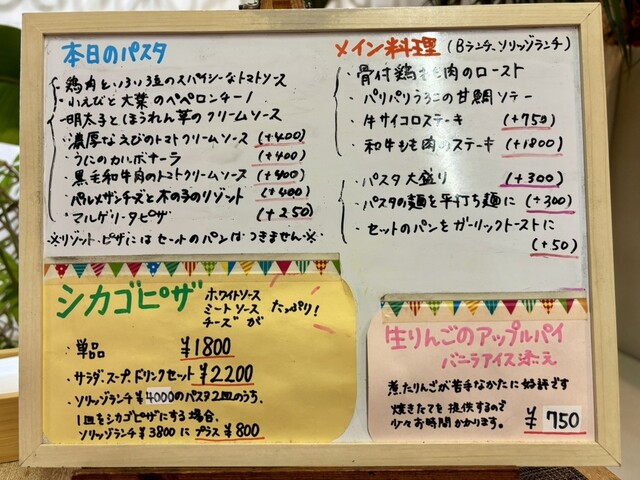 本日のパスタ
・鶏肉といろいろ豆のスパイシーなトマトソース
・小えびと大葉のペペロンチーノ
・明太子とほうれん草のクリームソース
・濃厚なえびのトマトクリームソース (+400)
・うにのカルボナーラ (+400)
・黒毛和牛肉のトマトクリームソース (+400)
・パルメザンチーズと木の子のリゾット (+400)
・マルゲリータピザ (+250)
※リゾット・ピザにはセットのパンはつきません※
メイン料理 (Bランチ、ソリッゾランチ)
・骨付鶏もも肉のロースト
・パリパリうろこの甘鯛ソテー
・牛サイコロステーキ (+750)
・和牛もも肉のステーキ (+1800)
・パスタ大盛り (+300)
・パスタの麺を平打ち麺に (+300)
・セットのパンをガーリックトーストに
(+50)
シカゴピザ
ホワイトソース
ミートソース
チーズが
たっぷり!
・単品 ¥1800
・サラダ・スープ・ドリンクセット ¥2200
・ソリッゾランチ¥4000のパスタ2皿のうち、
1皿をシカゴピザにする場合、
ソリッゾランチ¥3800に プラス¥800
生りんごのアップルパイ
バニラアイス添え
煮たりんごが苦手なかたに好評です
焼きたてを提供するので
少々お時間かかります。
¥750